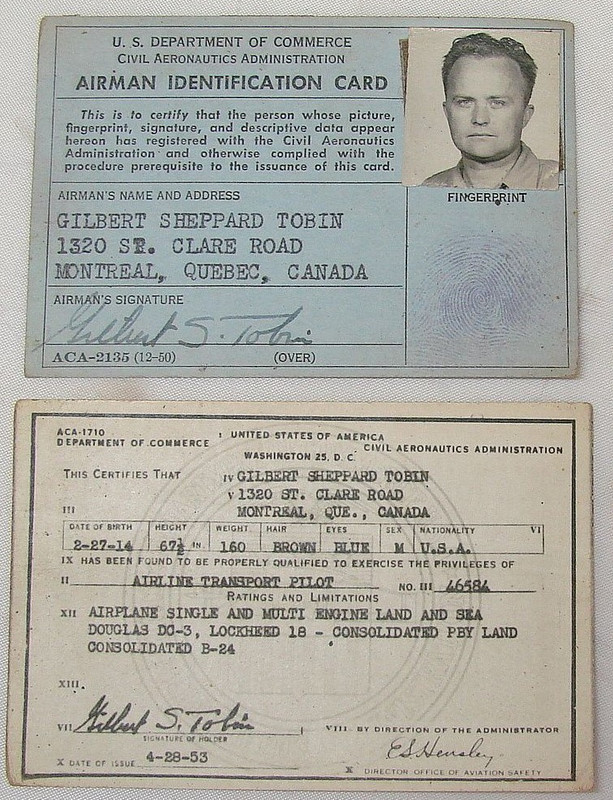 U. S. DEPARTMENT OF COMMERCE
CIVIL AERONAUTICS ADMINISTRATION
AIRMAN IDENTIFICATION CARD
This is to certify that the person whose picture,
fingerprint, signature, and descriptive data appear
hereon has registered with the Civil Aeronautics
Administration and otherwise complied with the
procedure prerequisite to the issuance of this card.
AIRMAN'S NAME AND ADDRESS
FINGERPRINT
GILBERT SHEPPARD TOBIN
1320 ST. CLARE ROAD
MONTREAL, QUEBEC, CANADA
AIRMAN'S SIGNATURE
Gilbert S. Tobin
ACA-2135 (12-50) (OVER)
ACA-1710
UNITED STATES OF AMERICA
DEPARTMENT OF COMMERCE CIVIL AERONAUTICS ADMINISTRATION
WASHINGTON 25, D. C.
THIS CERTIFIES THAT IV GILBERT SHEPPARD TOBIN
V 1320 ST. CLARE ROAD
III MONTREAL, QUE., CANADA
DATE OF BIRTH HEIGHT WEIGHT HAIR EYES SEX NATIONALITY VI
2-27-14 67½ IN. 160 BROWN BLUE M U.S.A.
IX HAS BEEN FOUND TO BE PROPERLY QUALIFIED TO EXERCISE THE PRIVILEGES OF
II AIRLINE TRANSPORT PILOT NO. III 46584
RATINGS AND LIMITATIONS
XII AIRPLANE SINGLE AND MULTI ENGINE LAND AND SEA
DOUGLAS DC-3, LOCKHEED 18 - CONSOLIDATED PBY LAND
CONSOLIDATED B-24
XIII.
VII. Gilbert S. Tobin VIII. BY DIRECTION OF THE ADMINISTRATOR
SIGNATURE OF HOLDER
E S Hensley
X DATE OF ISSUE 4-28-53
X DIRECTOR OFFICE OF AVIATION SAFETY